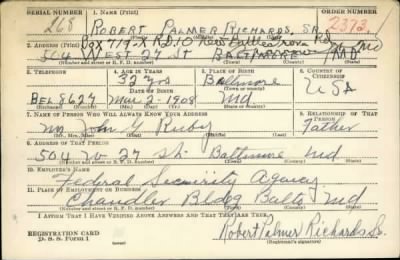 SERIAL NUMBER 1. NAME (Print) ORDER NUMBER
268 ROBERT PALMER RICHARDS, SR. 2373
(First) (Middle) (Last)
Box 719-A RD. 10 New
2. ADDRESS (Print)
504 WEST 27 ST BALTIMORE Md
(Number and street or R. F. D. number) (Town) (County) (State)
3. TELEPHONE 4. AGE IN YEARS 5. PLACE OF BIRTH 6. COUNTRY OF CITIZENSHIP
32 yrs Baltimore
DATE OF BIRTH (Town or county) USA
BEL 8627 Mar 2-1908 Md
(Exchange) (Number) (Mo.) (Day) (Yr.) (State or country)
7. NAME OF PERSON WHO WILL ALWAYS KNOW YOUR ADDRESS 8. RELATIONSHIP OF THAT PERSON
Father
(Mr., Mrs., Miss) (First) (Middle) (Last)
9. ADDRESS OF THAT PERSON
504 W 27 St. Baltimore Md
(Number and street or R. F. D. number) (Town) (County) (State)
10. EMPLOYER'S NAME
Federal Security Agency
11. PLACE OF EMPLOYMENT OR BUSINESS
Chandler Bldg Balto Md
(Number and street or R. F. D. number) (Town) (County) (State)
I AFFIRM THAT I HAVE VERIFIED ABOVE ANSWERS AND THAT THEY ARE TRUE.
REGISTRATION CARD
D. S. S. FORM 1
Robert Palmer Richards Sr.
(Registrant's signature)